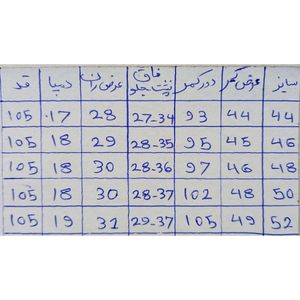 سایز عرض کمر دور کمر فاق پشت جلو عرض ران دمپا قد
44 44 93 27-34 28 17 105
46 45 95 28-35 29 18 105
48 46 97 28-36 30 18 105
50 48 102 28-37 30 18 105
52 49 105 29-37 31 19 105